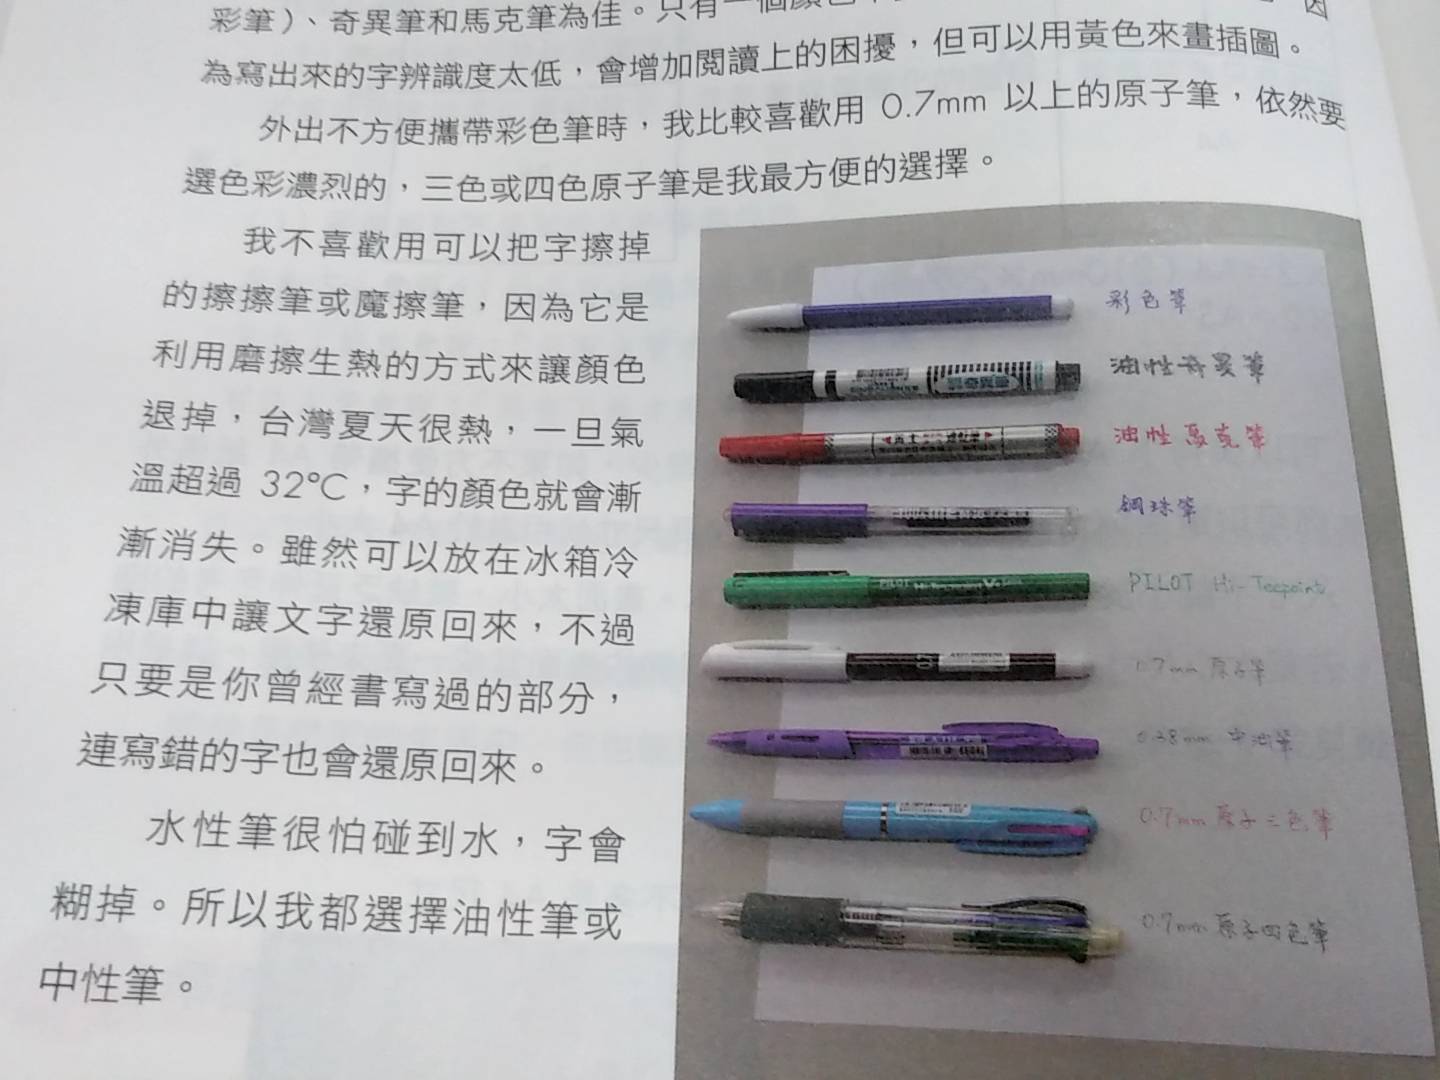 彩筆)、奇異筆和馬克筆為佳。只有一個顏色
因
為寫出來的字辨識度太低，會增加閱讀上的困擾，但可以用黃色來畫插圖。
外出不方便攜帶彩色筆時，我比較喜歡用 0.7mm 以上的原子筆，依然要
選色彩濃烈的，三色或四色原子筆是我最方便的選擇。
我不喜歡用可以把字擦掉
的擦擦筆或魔擦筆，因為它是
利用磨擦生熱的方式來讓顏色
退掉，台灣夏天很熱，一旦氣
溫超過 32°C，字的顏色就會漸
漸消失。雖然可以放在冰箱冷
凍庫中讓文字還原回來，不過
只要是你曾經書寫過的部分，
連寫錯的字也會還原回來。
水性筆很怕碰到水，字會
糊掉。所以我都選擇油性筆或
中性筆。
彩色筆
油性奇異筆
油性馬克筆
鋼珠筆
PILOT
PILOT Hi-Tecpoint
0.7mm 原子筆
0.38mm 中油筆
0.7mm 原子三色筆
0.7mm 原子四色筆